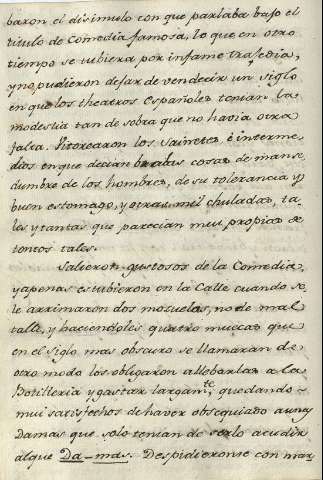 baron el disimulo con que paxlaba bajo el
titulo de Comedia famosa, lo que en otro
tiempo se ubiera por infame trajedia,
y no pudieron dejar de vendecir un siglo
en que los theatros Españoles tenian la
modestia tan de sobra que no havia otra
falta. Vitorearon los Sainetes é interme
dios en que decian brabas cosas de manse
dumbre de los hombres, de su tolerancia y
buen estomago, y otras mil chuladas, ta
les y tantas que parecian mui propias de
tontos tales.
Salieron gustosos de la Comedia,
y apenas estubieron en la Calle cuando se
le arrimaron dos mosuelas, no de mal
talle, y haciendoles quatro muecas que
en el siglo mas obscuro se llamaran de
otro modo los obligaron allebarlas a la
Botilleria y gastar largamte. quedando
mui satisfechos de haver obsequiado a unas
Damas que solo tenian de serlo acudir
al que Da-mas. Despidieronse con mas